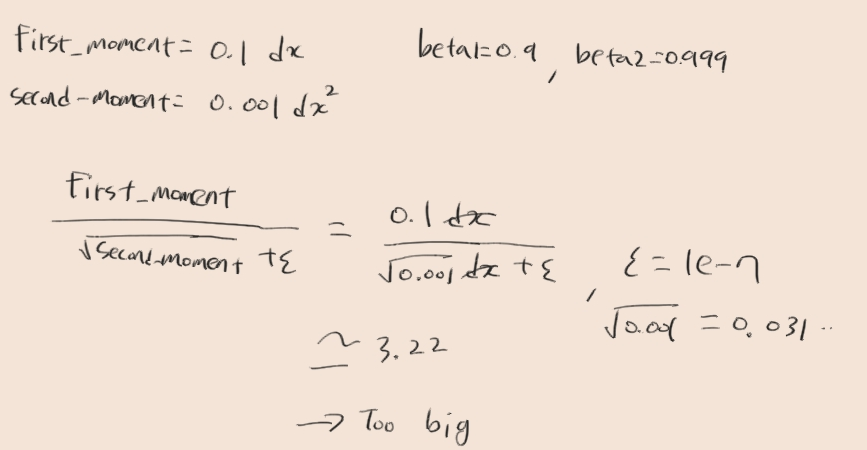 First_moment = 0.1 dx
beta1=0.9, beta2=0.999
second-moment= 0.001 dx²
First_moment / √second-moment + ε = 0.1 dx / √0.001 dx + ε, ε = 1e-7
√0.001 = 0.031..
≃ 3.22
→ Too big